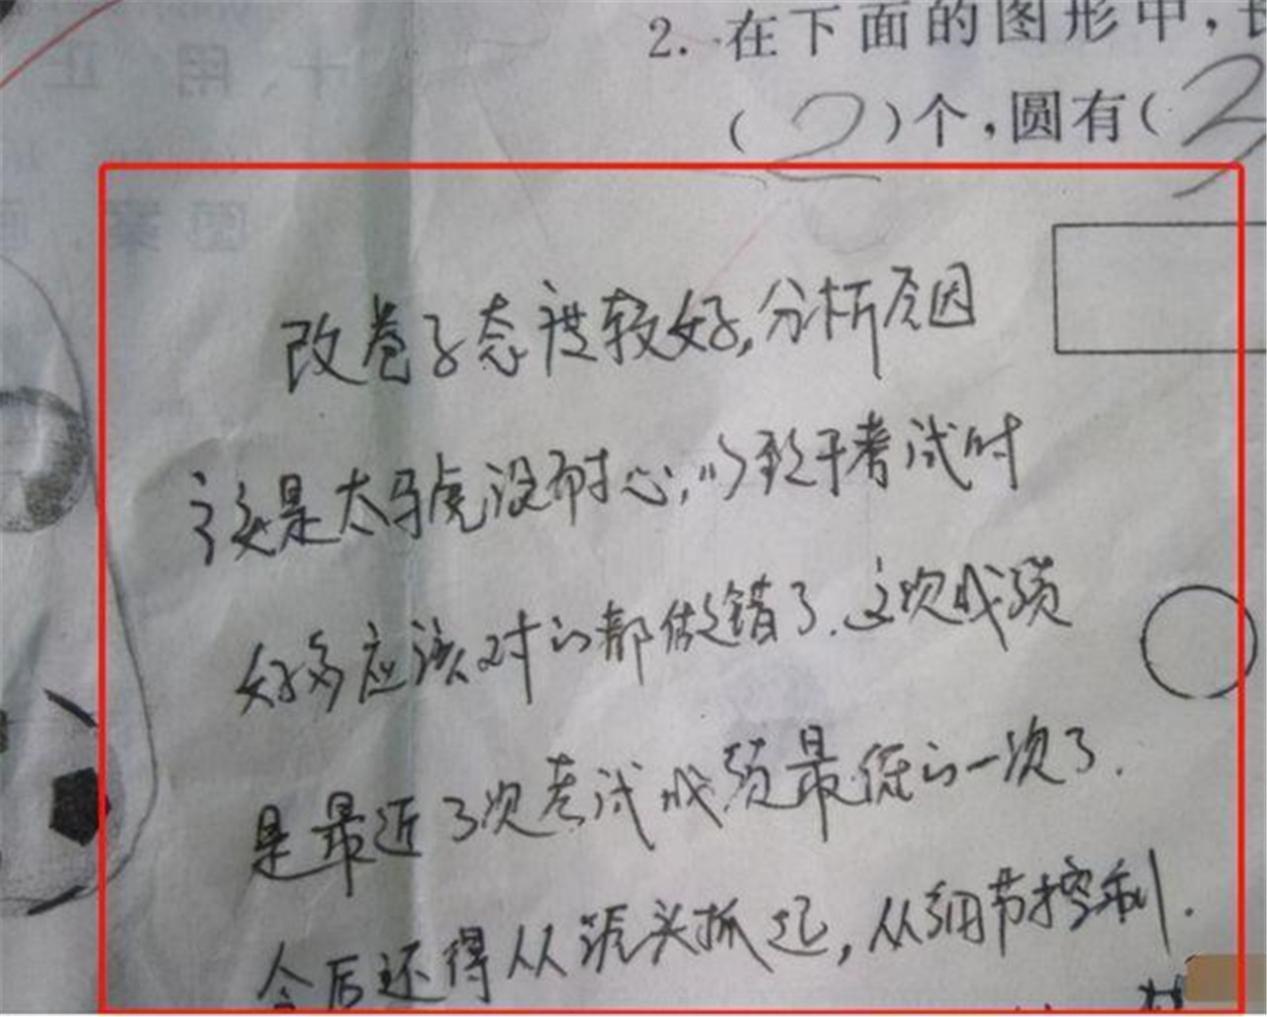 2. 在下面的图形中,
(2)个,圆有(3
改卷子态度较好,分析原因
该是太马虎没耐心,以致于考试时
好多应该对的都做错了.这次成绩
是最近3次考试成绩最低的一次了.
今后还得从源头抓起,从细节控制.